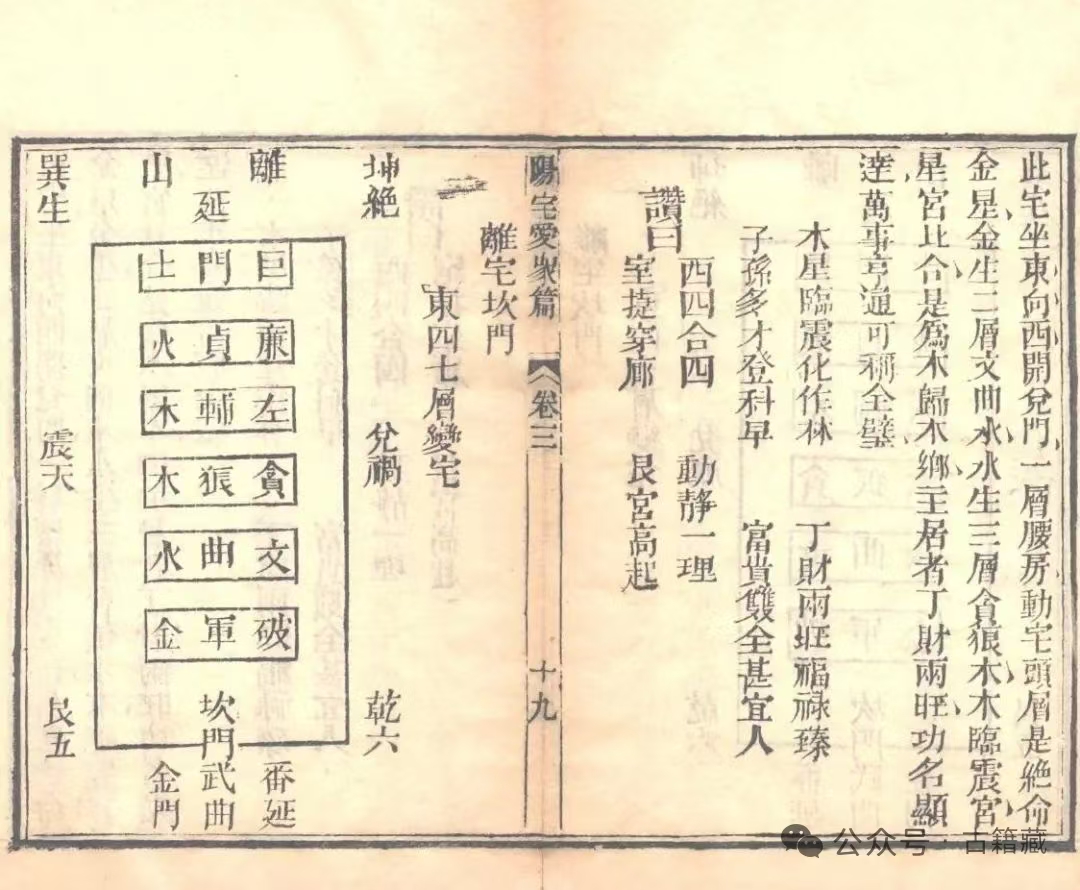 此宅坐東向西開兌門一層腰房動宅頭層是絶命
金星金生二層文曲水水生三層貪狼木木臨震宮
星宮比合是爲木歸木鄉主居者丁財兩旺功名顯
達萬事亨通可稱全璧
木星臨震化作林 丁財兩旺福禄臻
子孫多才登科早 富貴雙全甚宜人
西四合四 動静一理
讚曰
室捷穿廊 艮宮高起
陽宅愛衆篇 卷三 十九
離宅坎門
東四七層變宅
坤絶 兌禍 乾六
離 一番延
延 坎門武曲
山 金門
巨門土
亷貞火
左輔木
貪狼木
文曲水
破軍金
巽生 震天 艮五
公众号 · 古籍藏